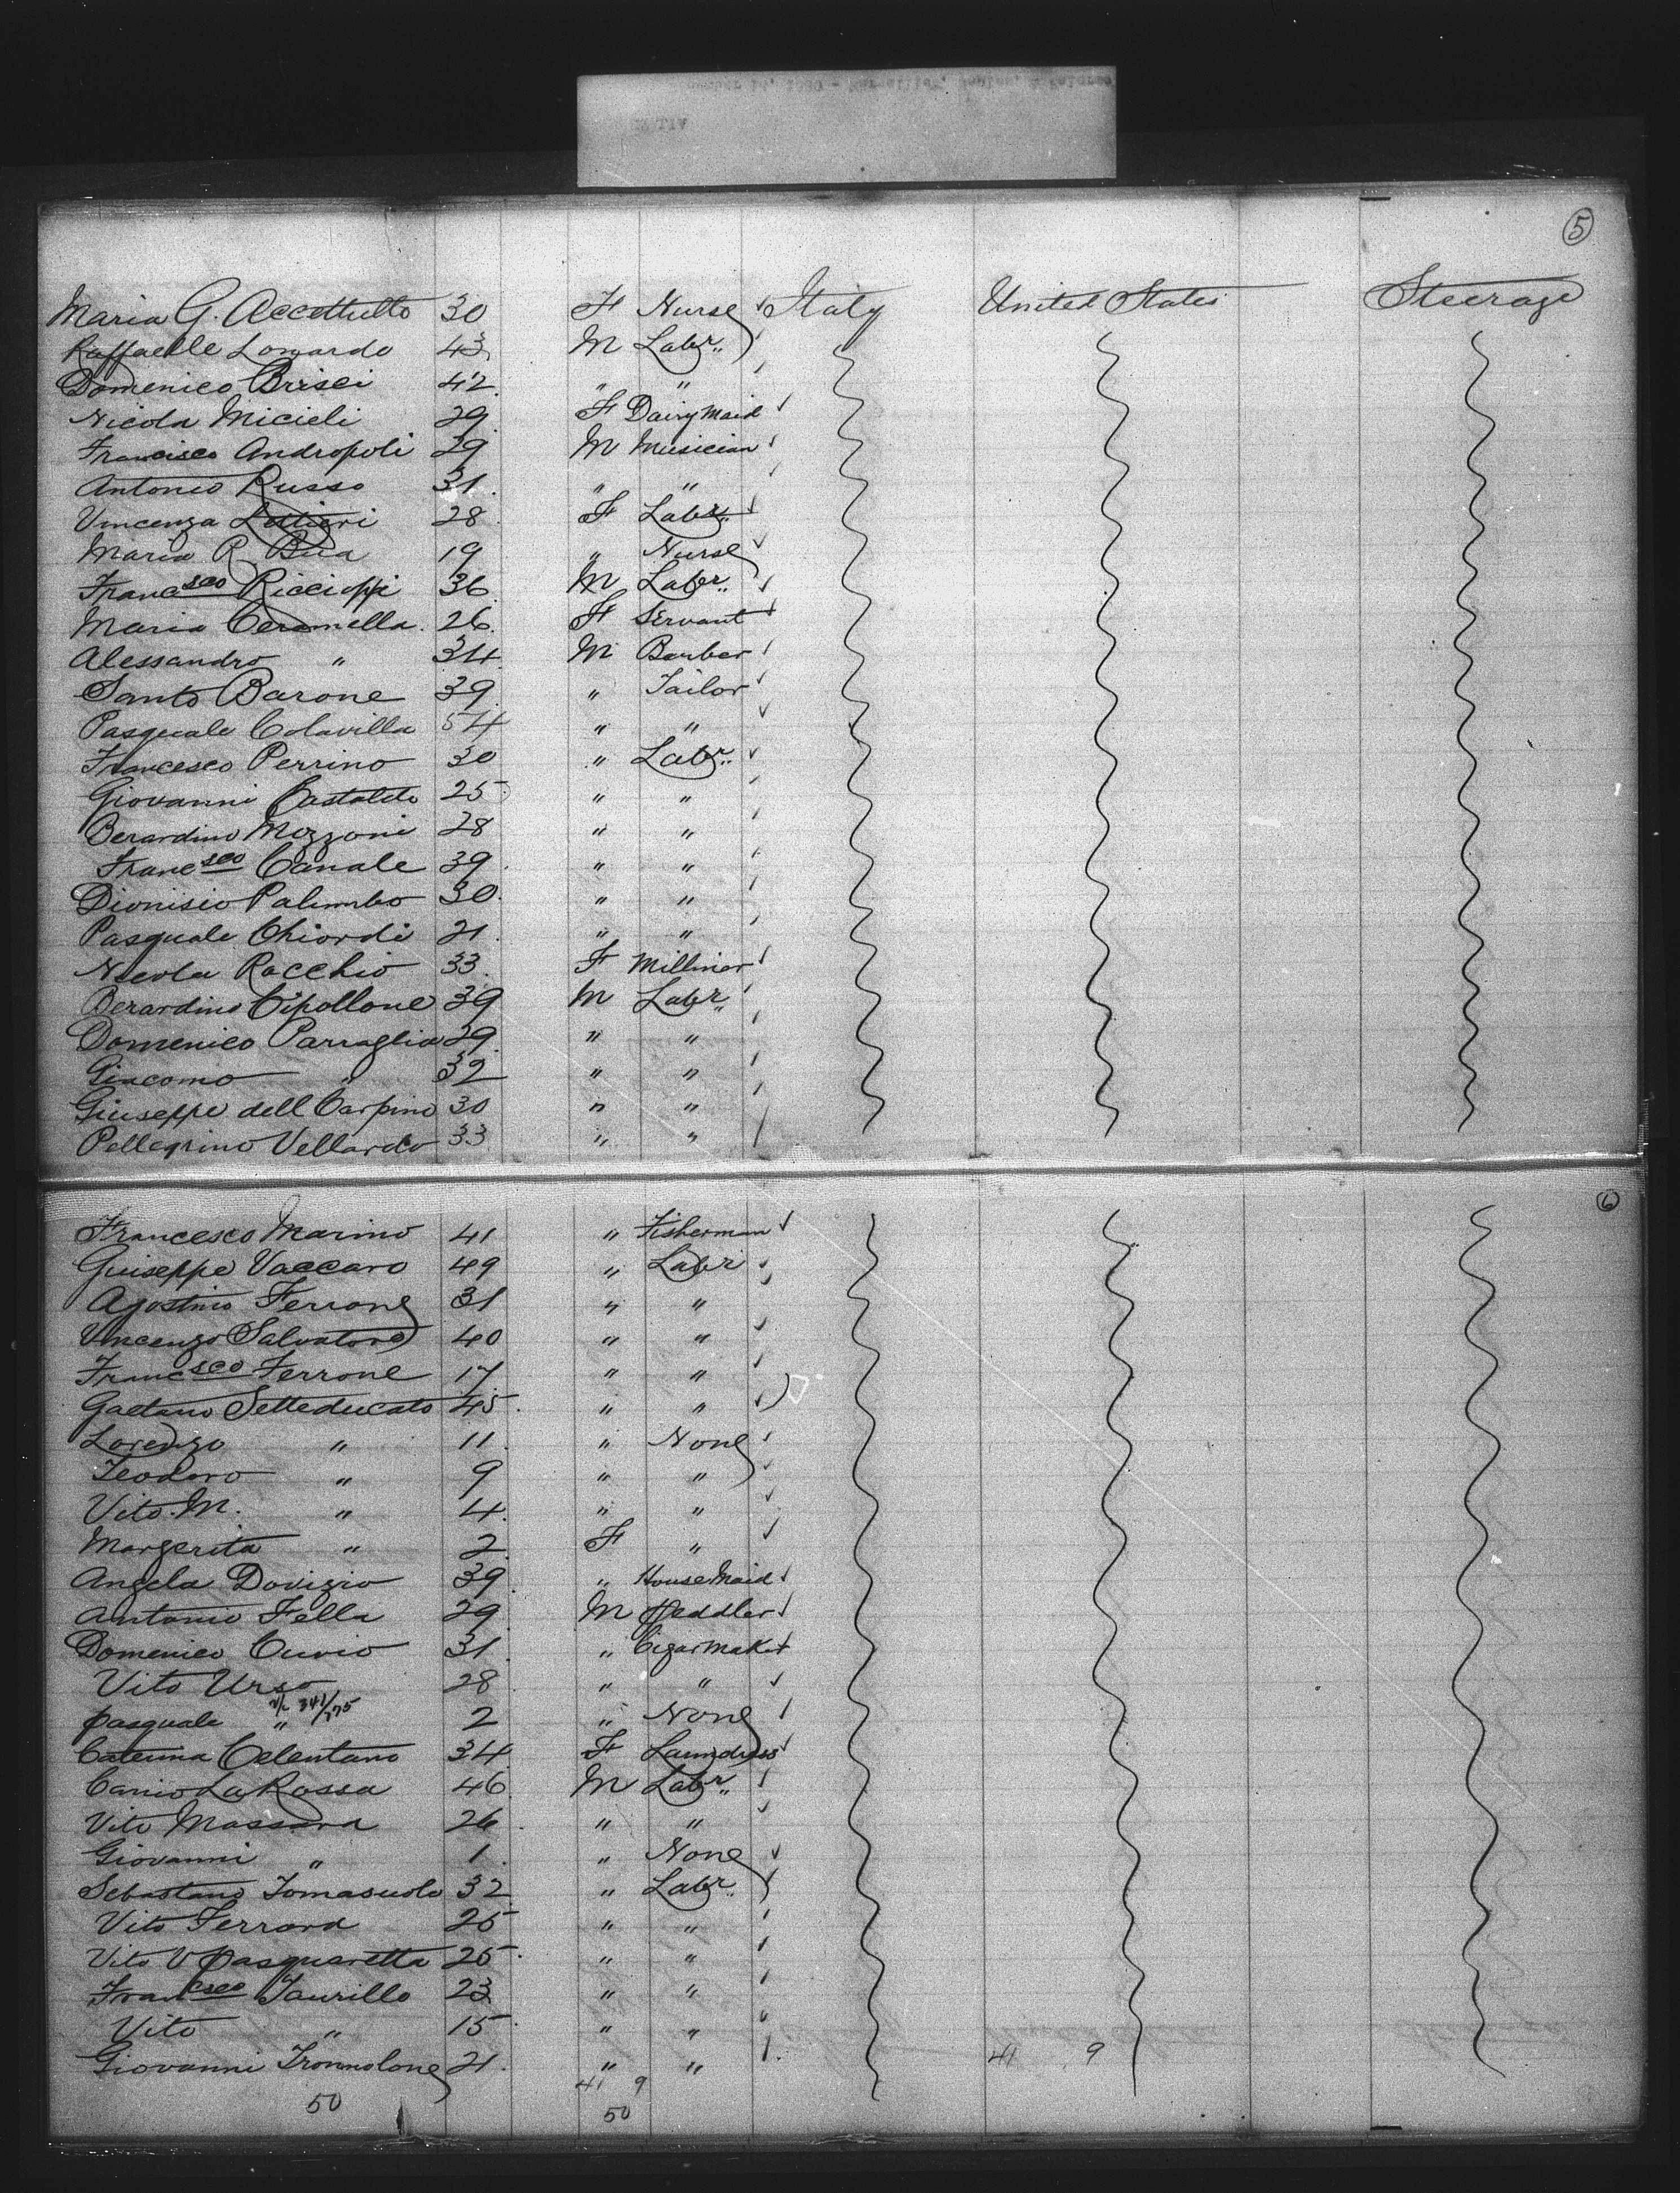 5
Maria G. Accettullo 30 F Nurse Italy United States Steerage
Raffaelle Lomardo 43 M Labr.
Domenico Brisci 42 " "
Nicola Micieli 29 F Dairy Maid
Francisco Andropoli 29 M Musician
Antonio Russo 31 " "
Vincenza Lettieri 28 F Labr.
Maria R. Bua 19 " Nurse
Francsco Riccioppi 36 M Labr.
Maria Ceramella 26 F Servant
Alessandro " 34 M Barber
Santo Barone 39 " Tailor
Pasquale Colavilla 54 " "
Francesco Perrino 30 " Labr.
Giovanni Castaldo 25 " "
Berardino Mozzoni 28 " "
Francsco Canale 39 " "
Dionisio Palumbo 30 " "
Pasquale Chiordi 21 " "
Nicola Racchio 33 F Milliner
Berardino Cipollone 39 M Labr.
Domenico Parraglia 29 " "
Giacomo " 32 " "
Giuseppe dell Carpino 30 " "
Pellegrino Vellardo 33 " "
6
Francesco Marino 41 " Fisherman
Guiseppe Vaccaro 49 " Labr
Agostino Ferrone 31 " "
Vincenzo Salvatore 40 " "
Francsco Ferrone 17 " "
Gaetano Setteducato 45 " "
Lorenzo " 11 " None
Teodoro " 9 " "
Vito M. " 4 " "
Margerita " 2 F "
Angela Dovizio 39 " House Maid
Antonio Fella 29 M Peddler
Domenico Curio 31 " Cigar Maker
Vito Urso 28 " "
Pasquale " 2 " None
Caterina Celentano 34 F Laundress
Canio La Rossa 46 M Labr.
Vito Massara 26 " "
Giovanni " 1 " None
Sebastano Tomasuolo 32 " Labr.
Vito Ferrara 25 " "
Vito V Pasquaretta 25 " "
Francsco Taurillo 23 " "
Vito " 15 " "
Giovanni Tronnolone 21 " "
41 9 41 9
50 50